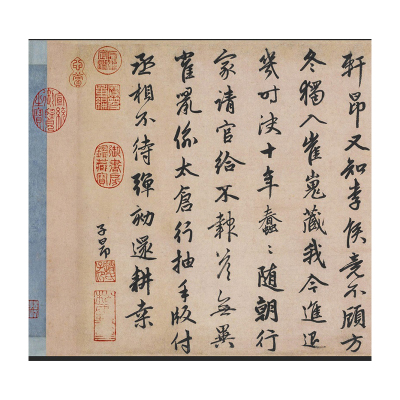 軒昂又知李侯竟不顧方
冬獨入崔嵬藏我今進退
幾時決十年蠢〻隨朝行
家請官給不報荅無異
雀鼠偷太倉行抽手版付
丞相不待彈劾還耕桒
子昂
御書房鑑藏寶